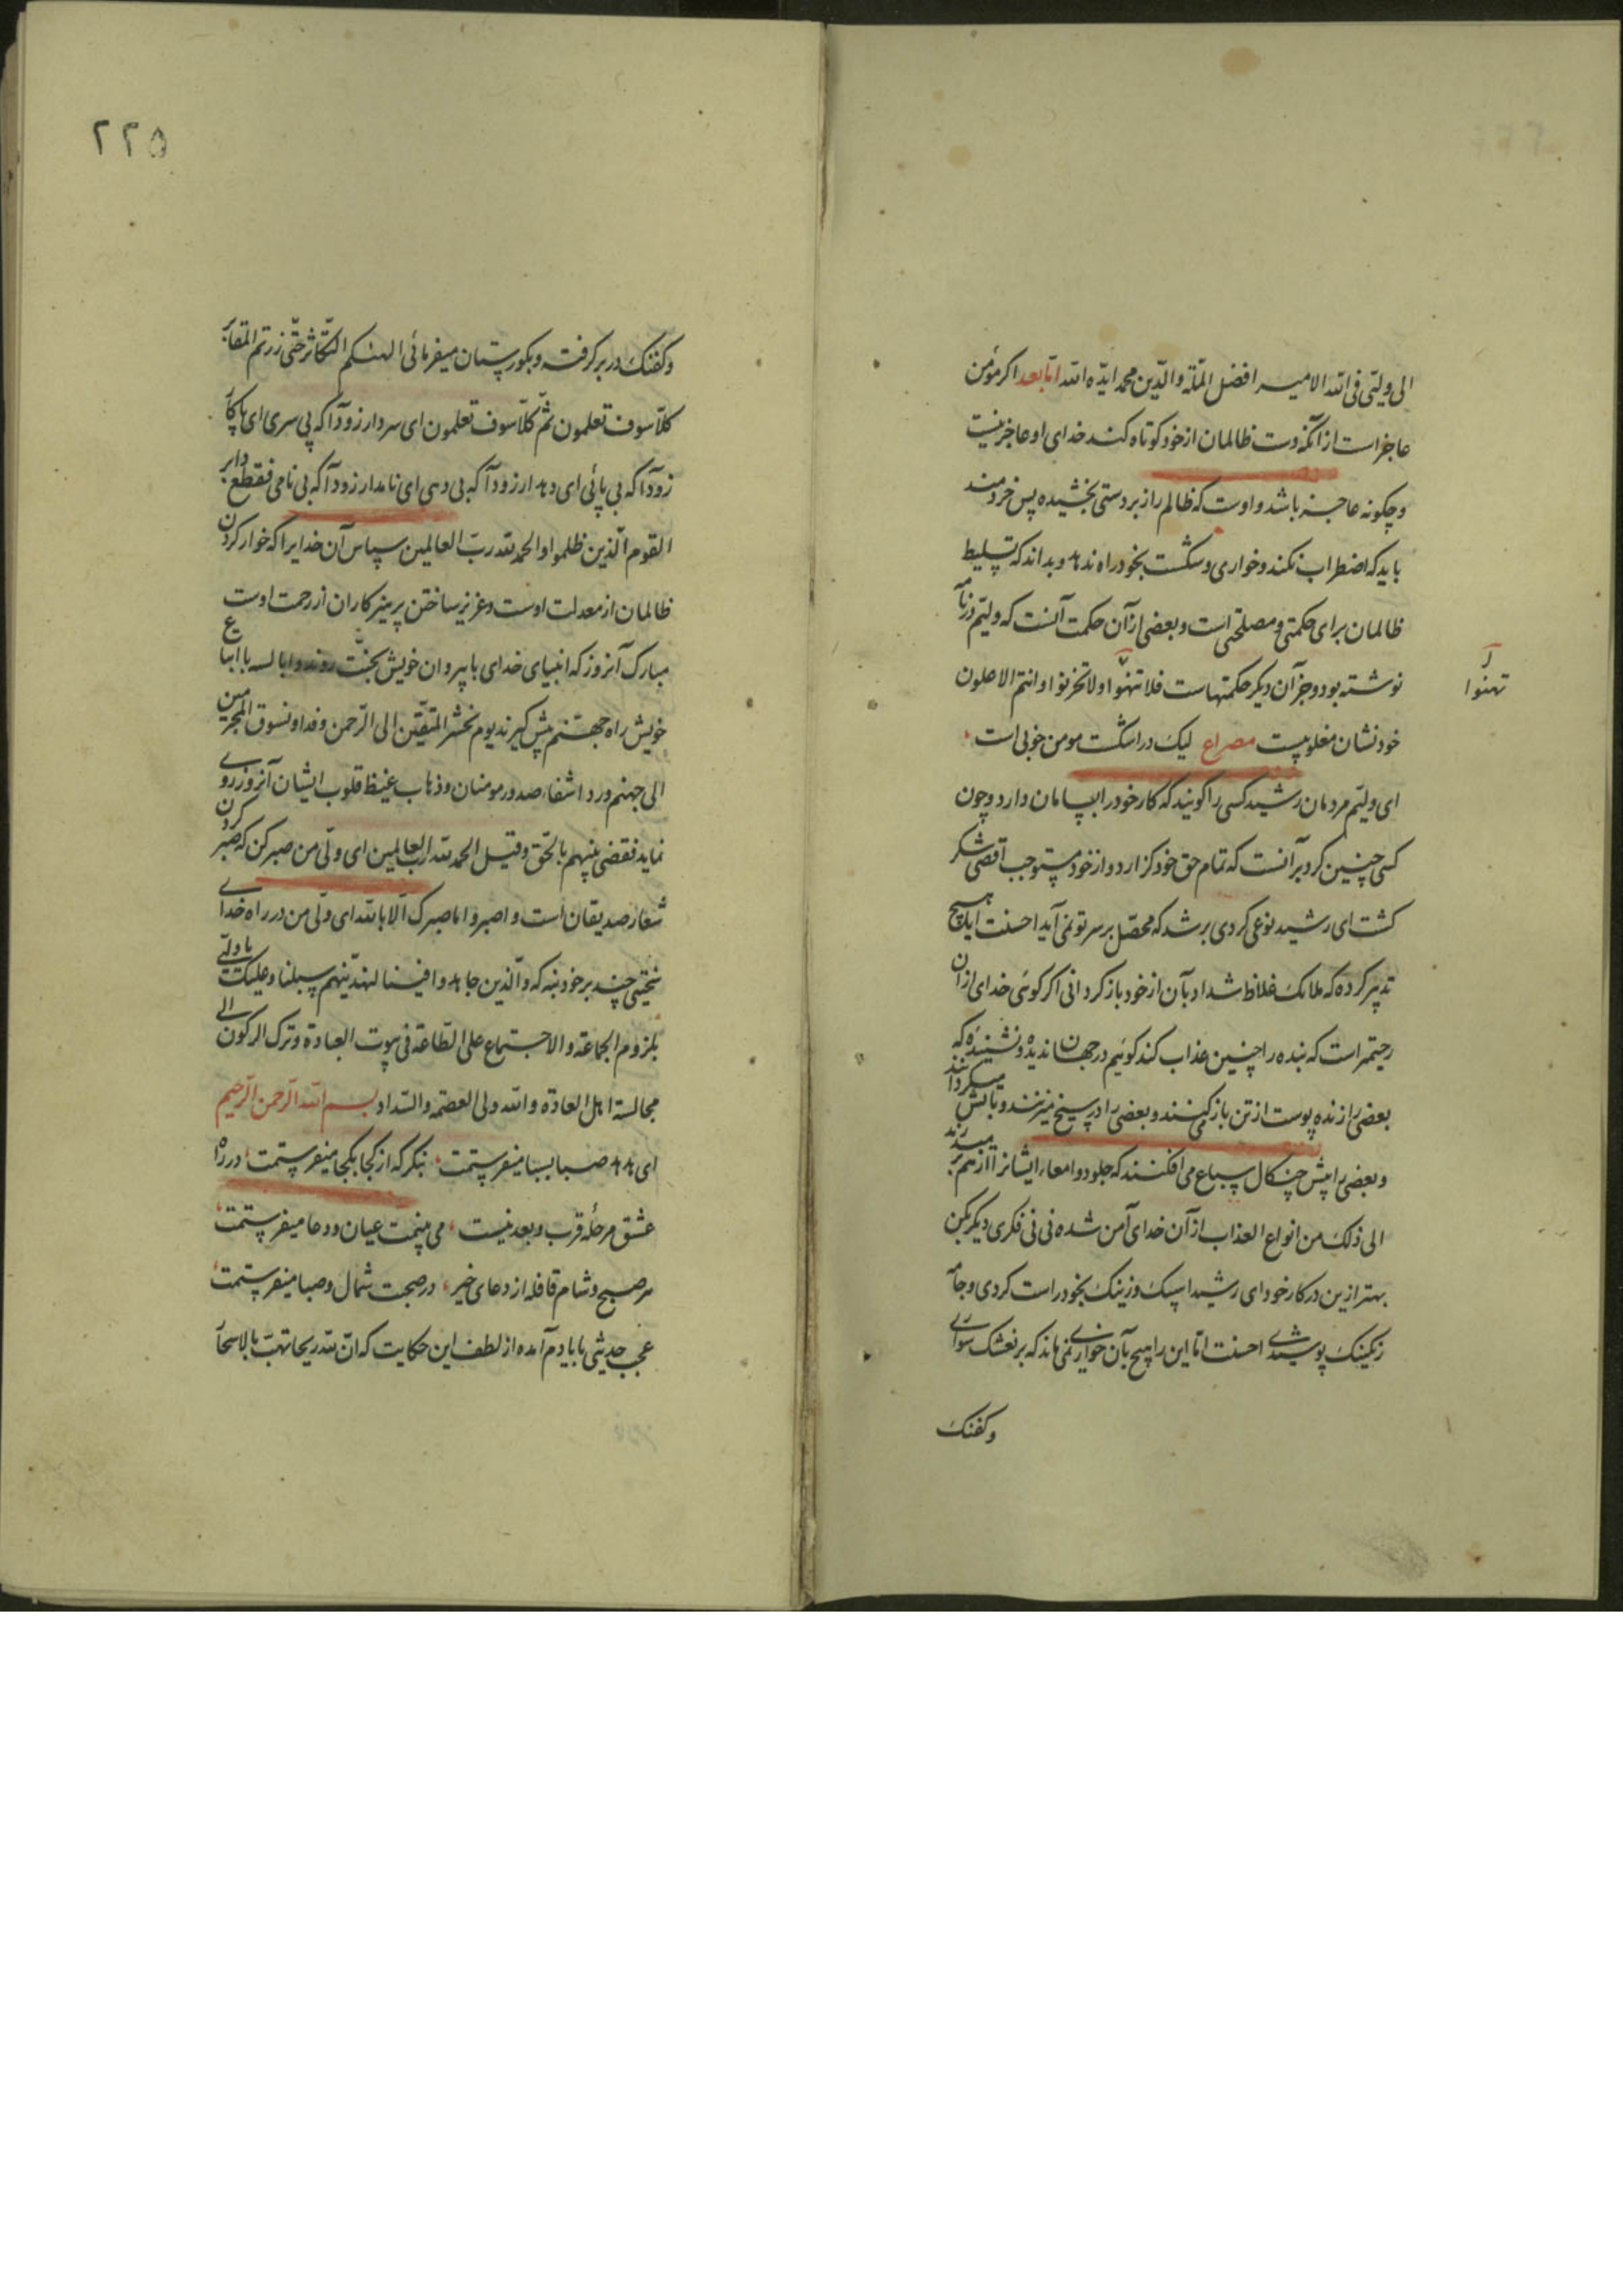 الی ولیّی فی الله الامیر افضل الملّة والدّین محمد ایّده الله امّا بعد اکر مؤمن
عاجز است از آنکه دست ظالمان از خود کوتاه کند خدای او عاجز نیست
و چکونه عاجز باشد و اوست که ظالم را زبردستی بخشیده پس خردمند
باید که اضطراب نکند و خواری و شکست بخود راه ندهد و بداند که تسلیط
ظالمان برای حکمتی و مصلحتی است و بعضی از آن حکمت آنست که ولیّم در نامه
نوشته بود و جز آن دیکر حکمتهاست فلا تهنوا و لا تحزنوا و انتم الاعلون
تهنوا
خود نشان مغلوبیست مصراع لیک در اشکست مومن خوبی است
ای ولیّم مردمان رشید کسی را کویند که کار خود را بسامان دارد و چون
کسی چنین کرد بر آنست که تمام حق خود کزارد و از خود مستوجب اقصی شکر
کشت ای رشید نوعی کردی برشد که محصّل بر سر تو نمی آید احسنت آیا هیچ
تدبیر کرده که ملائک غلاظ شداد بآن از خود باز کردانی اکر کوئی خدای از آن
رحیمتر است که بنده را چنین عذاب کند کوئیم در جهان ندیده و نشنیده که
بعضی را زنده پوست از تن باز می‌کنند و بعضی را در سیخ میزنند و بآتش میکردانند
و بعضی را پیش چنکال سباع می افکنند که جلود و امعاء ایشانرا از هم میدرند
الی ذلک من انواع العذاب از آن خدای آمن شده نی نی فکری دیکر بکن
بهتر ازین در کار خود ای رشید اسبک و زینک بخود راست کردی و جامه
رنکینک پوشیدی احسنت امّا این را هیچ بآن خواری نمی ماند که بر نعشک سواری
و کفنک
۲۲۵
و کفنک در بر کرفته و بکورستان میفرمائی الهیکم التّکاثر حتّی زرتم المقابر
کلّا سوف تعلمون ثمّ کلّا سوف تعلمون ای سردار زودآ که بی سری ای پاکار
زودآ که بی پائی ای دهدار زودآ که بی دهی ای نامدار زودآ که بی نامی فقطع دابر
القوم الّذین ظلموا و الحمد لله ربّ العالمین سپاس آن خدایرا که خوار کردن
ظالمان از معدلت اوست و عزیز ساختن پرهیزکاران از رحمت اوست
مبارک آنروز که انبیای خدای با پیروان خویش بجنّت روند و ابالسه با اتباع
خویش راه جهنّم پیش کیرند یوم نحشر المتّقین الی الرّحمن وفدا و نسوق المجرمین
الی جهنم وردا شفاء صدور مومنان و ذهاب غیظ قلوب ایشان آنروز روی
نماید فقضی بینهم بالحّق و قیل الحمد لله ربّ العالمین ای ولّی من صبر کن که صبر کردن
شعار صدیقان است و اصبر و ما صبرک الّا بالله ای ولّی من در راه خدای
سختیی چند بر خود بنه که و الّذین جاهدوا فینا لنهدینّهم سبلنا و علیک یا ولیّی
بلزوم الجماعة و الاجتماع علی الطّاعة فی بیوت العبادة و ترک الرکون الی
مجالسة اهل العادة و الله ولی العصمه و السّداد بسم الله الرّحمن الرّحیم
ای هدهد صبا بسبا میفرستمت بنکر که از کجا بکجا میفرستمت در راه
عشق مرحلهٔ قرب و بعد نیست می بینمت عیان و دعا میفرستمت
هر صبح و شام قافله از دعای خیر در صحبت شمال و صبا میفرستمت
عجب حدیثی با یادم آمده از لطف این حکایت که انّ لله ریحا تهبّ بالاسحار